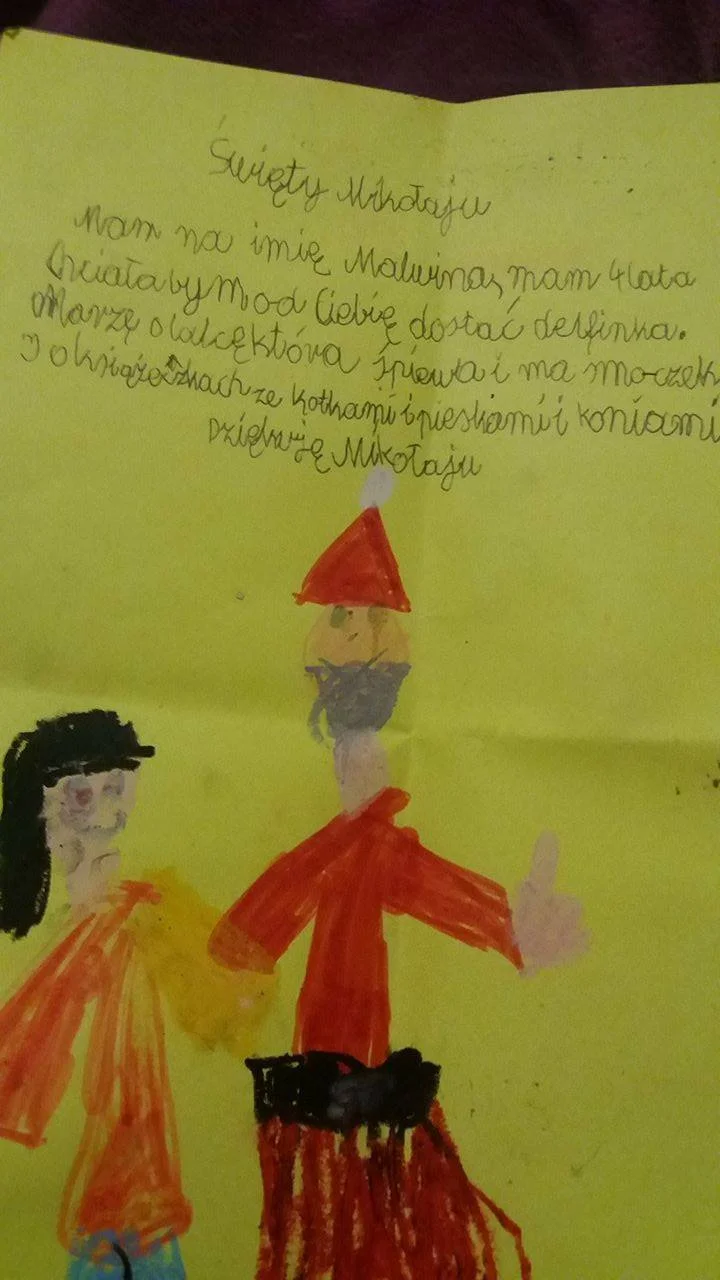 Święty Mikołaju
Mam na imię Malwina, mam 4 lata
Chciałabym od Ciebię dostać delfinka.
Marzę o lalcę która śpiewa i ma smoczek
I o książeczkach ze kotkami i pieskami i koniami
Dziękuję Mikołaju